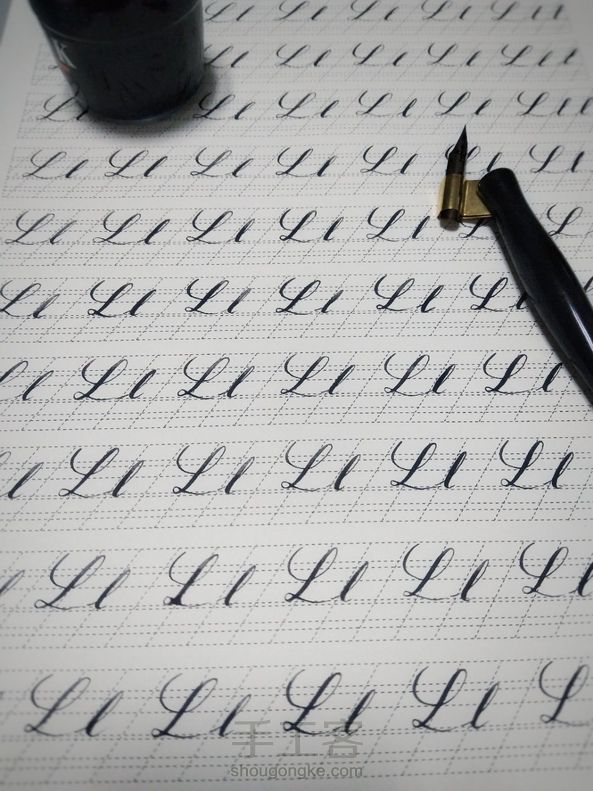 Ll Ll Ll Ll Lll
Ll Ll Ll Ll Lll
L Ll Ll Ll Ll Lll
Ll Ll Ll Ll Ll Ll Ll
Ll Ll Ll Ll Ll L L
Ll Ll Ll Ll Ll L
l Ll Ll Ll Ll Ll
l Ll Ll Ll Ll Ll
Ll Ll Ll Ll Ll
Ll Ll Ll Ll L
手工客
shougongke.com